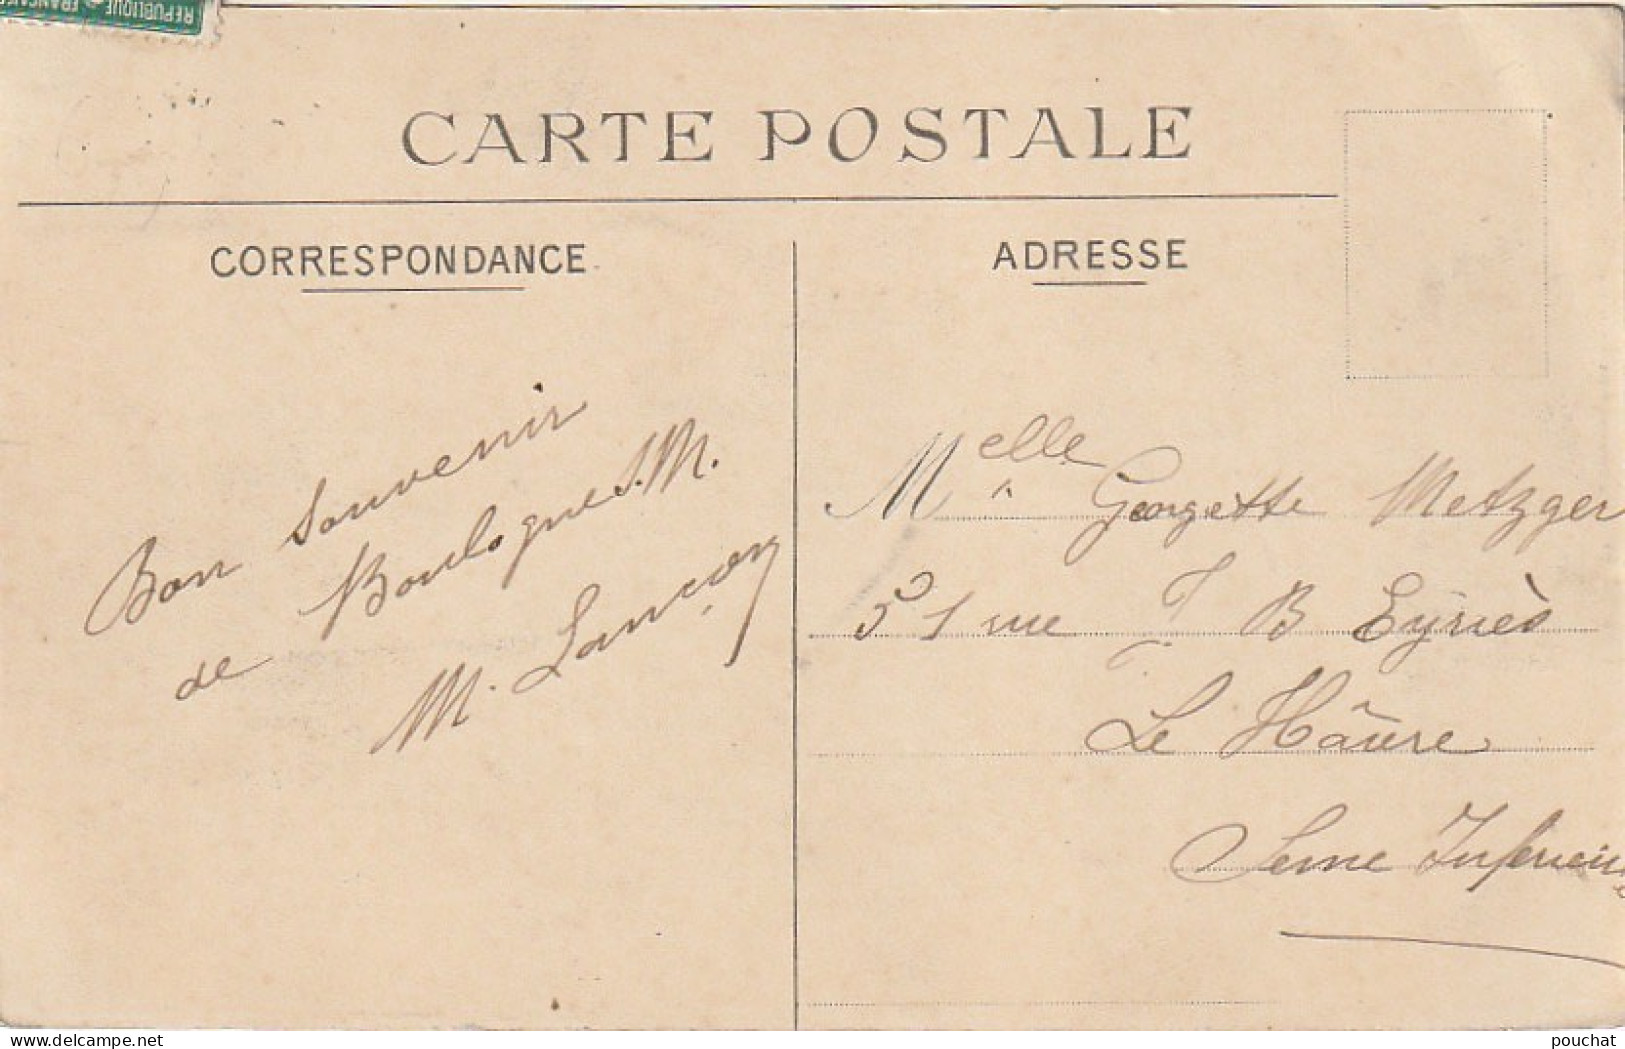 REPUBLIQUE FRANÇAISE
CARTE POSTALE
CORRESPONDANCE
ADRESSE
Bon souvenir
de Boulogne s.M.
M. Lançon
Melle Georgette Metzger
51 rue J B Eyriès
Le Hâvre
Seine Inférieure
www.delcampe.net
pouchat